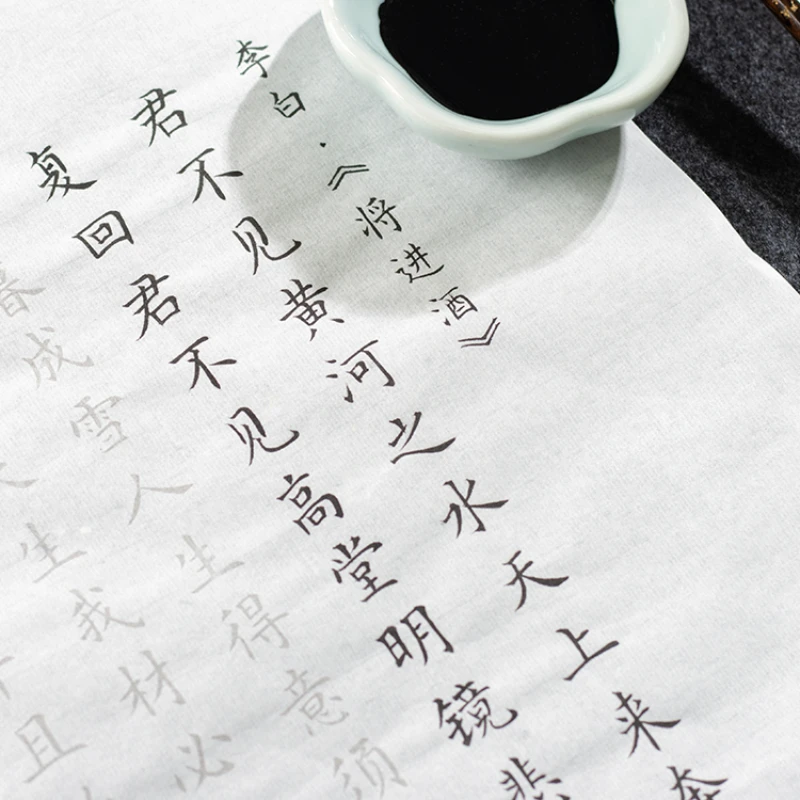 李白·《将进酒》
君不见黄河之水天上来奔
复回君不见高堂明镜悲
暮成雪人生得意须
生我材必
且